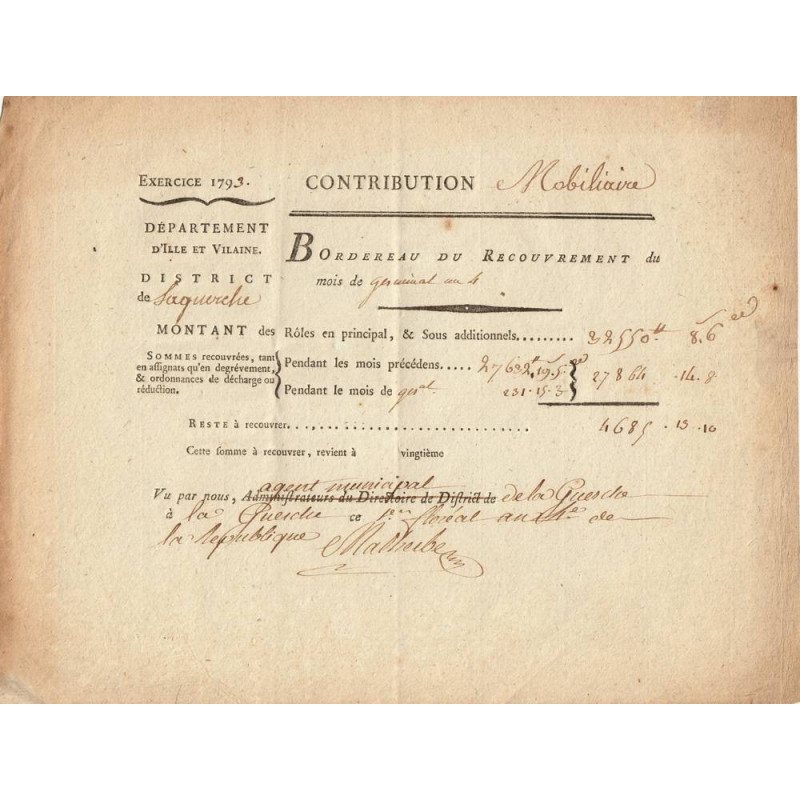 EXERCICE 1793.
CONTRIBUTION Mobiliaire
DÉPARTEMENT
D'ILLE ET VILAINE.
DISTRICT
de Laguerche
BORDEREAU DU RECOUVREMENT du
mois de germinal an 4
MONTANT des Rôles en principal, & Sous additionnels......... 32550 ₶ 8 s 6 d
SOMMES recouvrées, tant
en assignats qu'en degrévement,
& ordonnances de décharge ou
réduction.
Pendant les mois précédens..... 27632 ₶ 19 s 5 d
Pendant le mois de gal. 231. 15. 3
27864 .14.8
RESTE à recouvrer........................ 4685 .13.10
Cette somme à recouvrer, revient à vingtième
agent municipal
Vu par nous, Administrateurs du Directoire de District de de la Guerche
à la Guerche ce 1er floréal an 4e de
la republique Malherbe